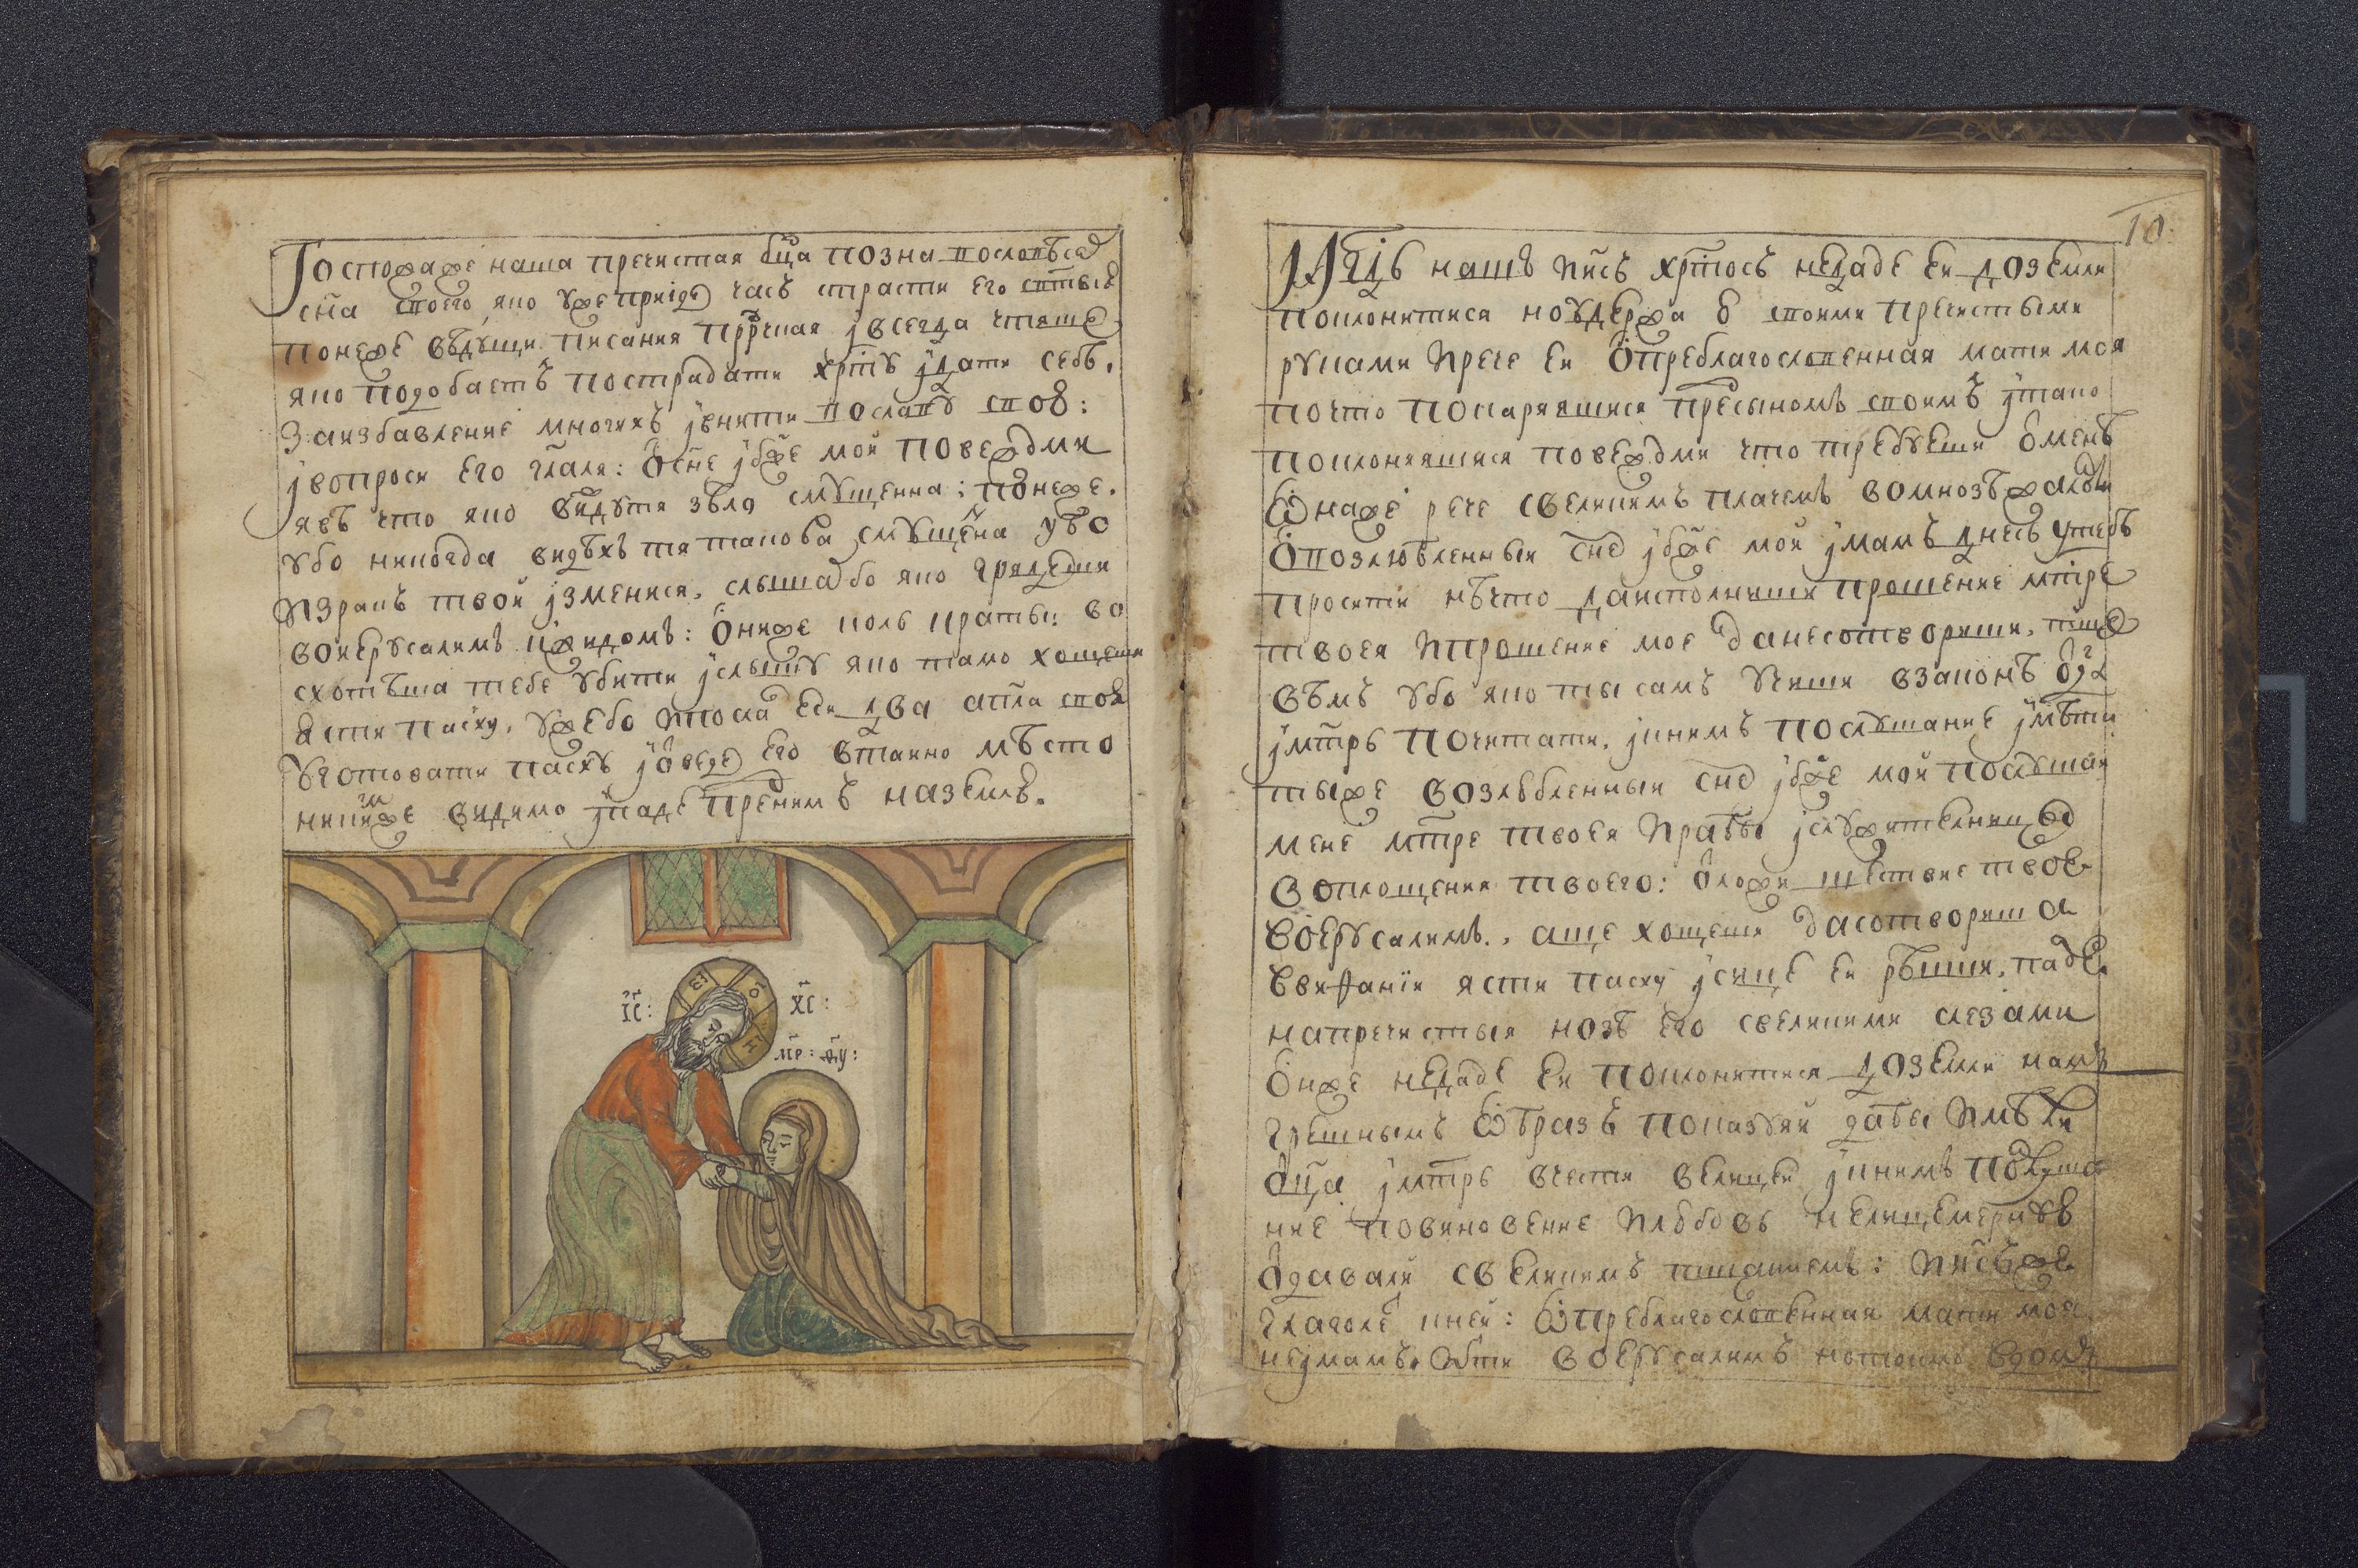 Госпожаже наша пречистая бца позна пословѣсѣ
сна своего, яко уже прїиде часъ страсти его стыѣ
понеже вѣдущи писания пррчкая ївсегда чтяше
яко подобаетъ пострадати хрту їдати себѣ.
Заизбавление многихъ ївнити вославу свою:
ївопроси его гла: О сне їбже мой повеждми
что яко видутя зѣло смущенна: понеже.
убо никогда видѣхъ тя такова смущена убо
Изракъ твой їзменися. слыша бо яко грядеши
воиерусалимъ кжидомъ: Ониже коль краты во
схотѣша тебе убити їслышу яко тамо хощеши
ясти пасху. ужебо послалъ еси два апла своя
уготовати пасху їотведе его втайно мѣсто
никимже видимо їпаде пренимъ наземлю.
ІС: ХС:
МР: ѲУ:
10
Гдь нашъ Іисъ хртосъ недаде ей доземли
поклонитися ноудержа ю своими пречистыми
руками Ирече ей О преблагословенная мати моя
почто покаряяшися пресыномъ своимъ їтако
поклоняяшися повеждми что требуеши омене
Онаже рече свеликимъ плачемъ вомнозѣ жалости
О возлюбленный сне їбже мой їмамъ днесь утебѣ
просити нѣчто даисполниши прошение мтре
твоея Ипрошение мое данесотвориши. тще
вѣмъ убо яко ты самъ учиши взаконѣ оца
їмтрь почитати. їкнимъ послушание їмѣти
тыже возлюбленный сне їбже мой послушай
мене мтре твоея Ирабы їслужителницы
воплощения твоего: Отложи шествие твое
воерусалимъ.. аще хощеши дасотвориши
ввиѳанїи ясти пасху їсице ей рѣкши. паде.
напречистыя нозѣ его свеликими слезами
Онже недаде ей поклонитися доземли намъ
грешнымъ Образъ показуяй дабы Имѣли
Оца їмтрь вчести велицей їкнимъ послуша
ние повиновение Илюбовь нелицемѣрную
Одавали свеликимъ тщаниемъ: Ииссъже
глагола кней: О преблагословенная мати моя
неїмамъ. Ити воерусалимъ нотокмо вдому